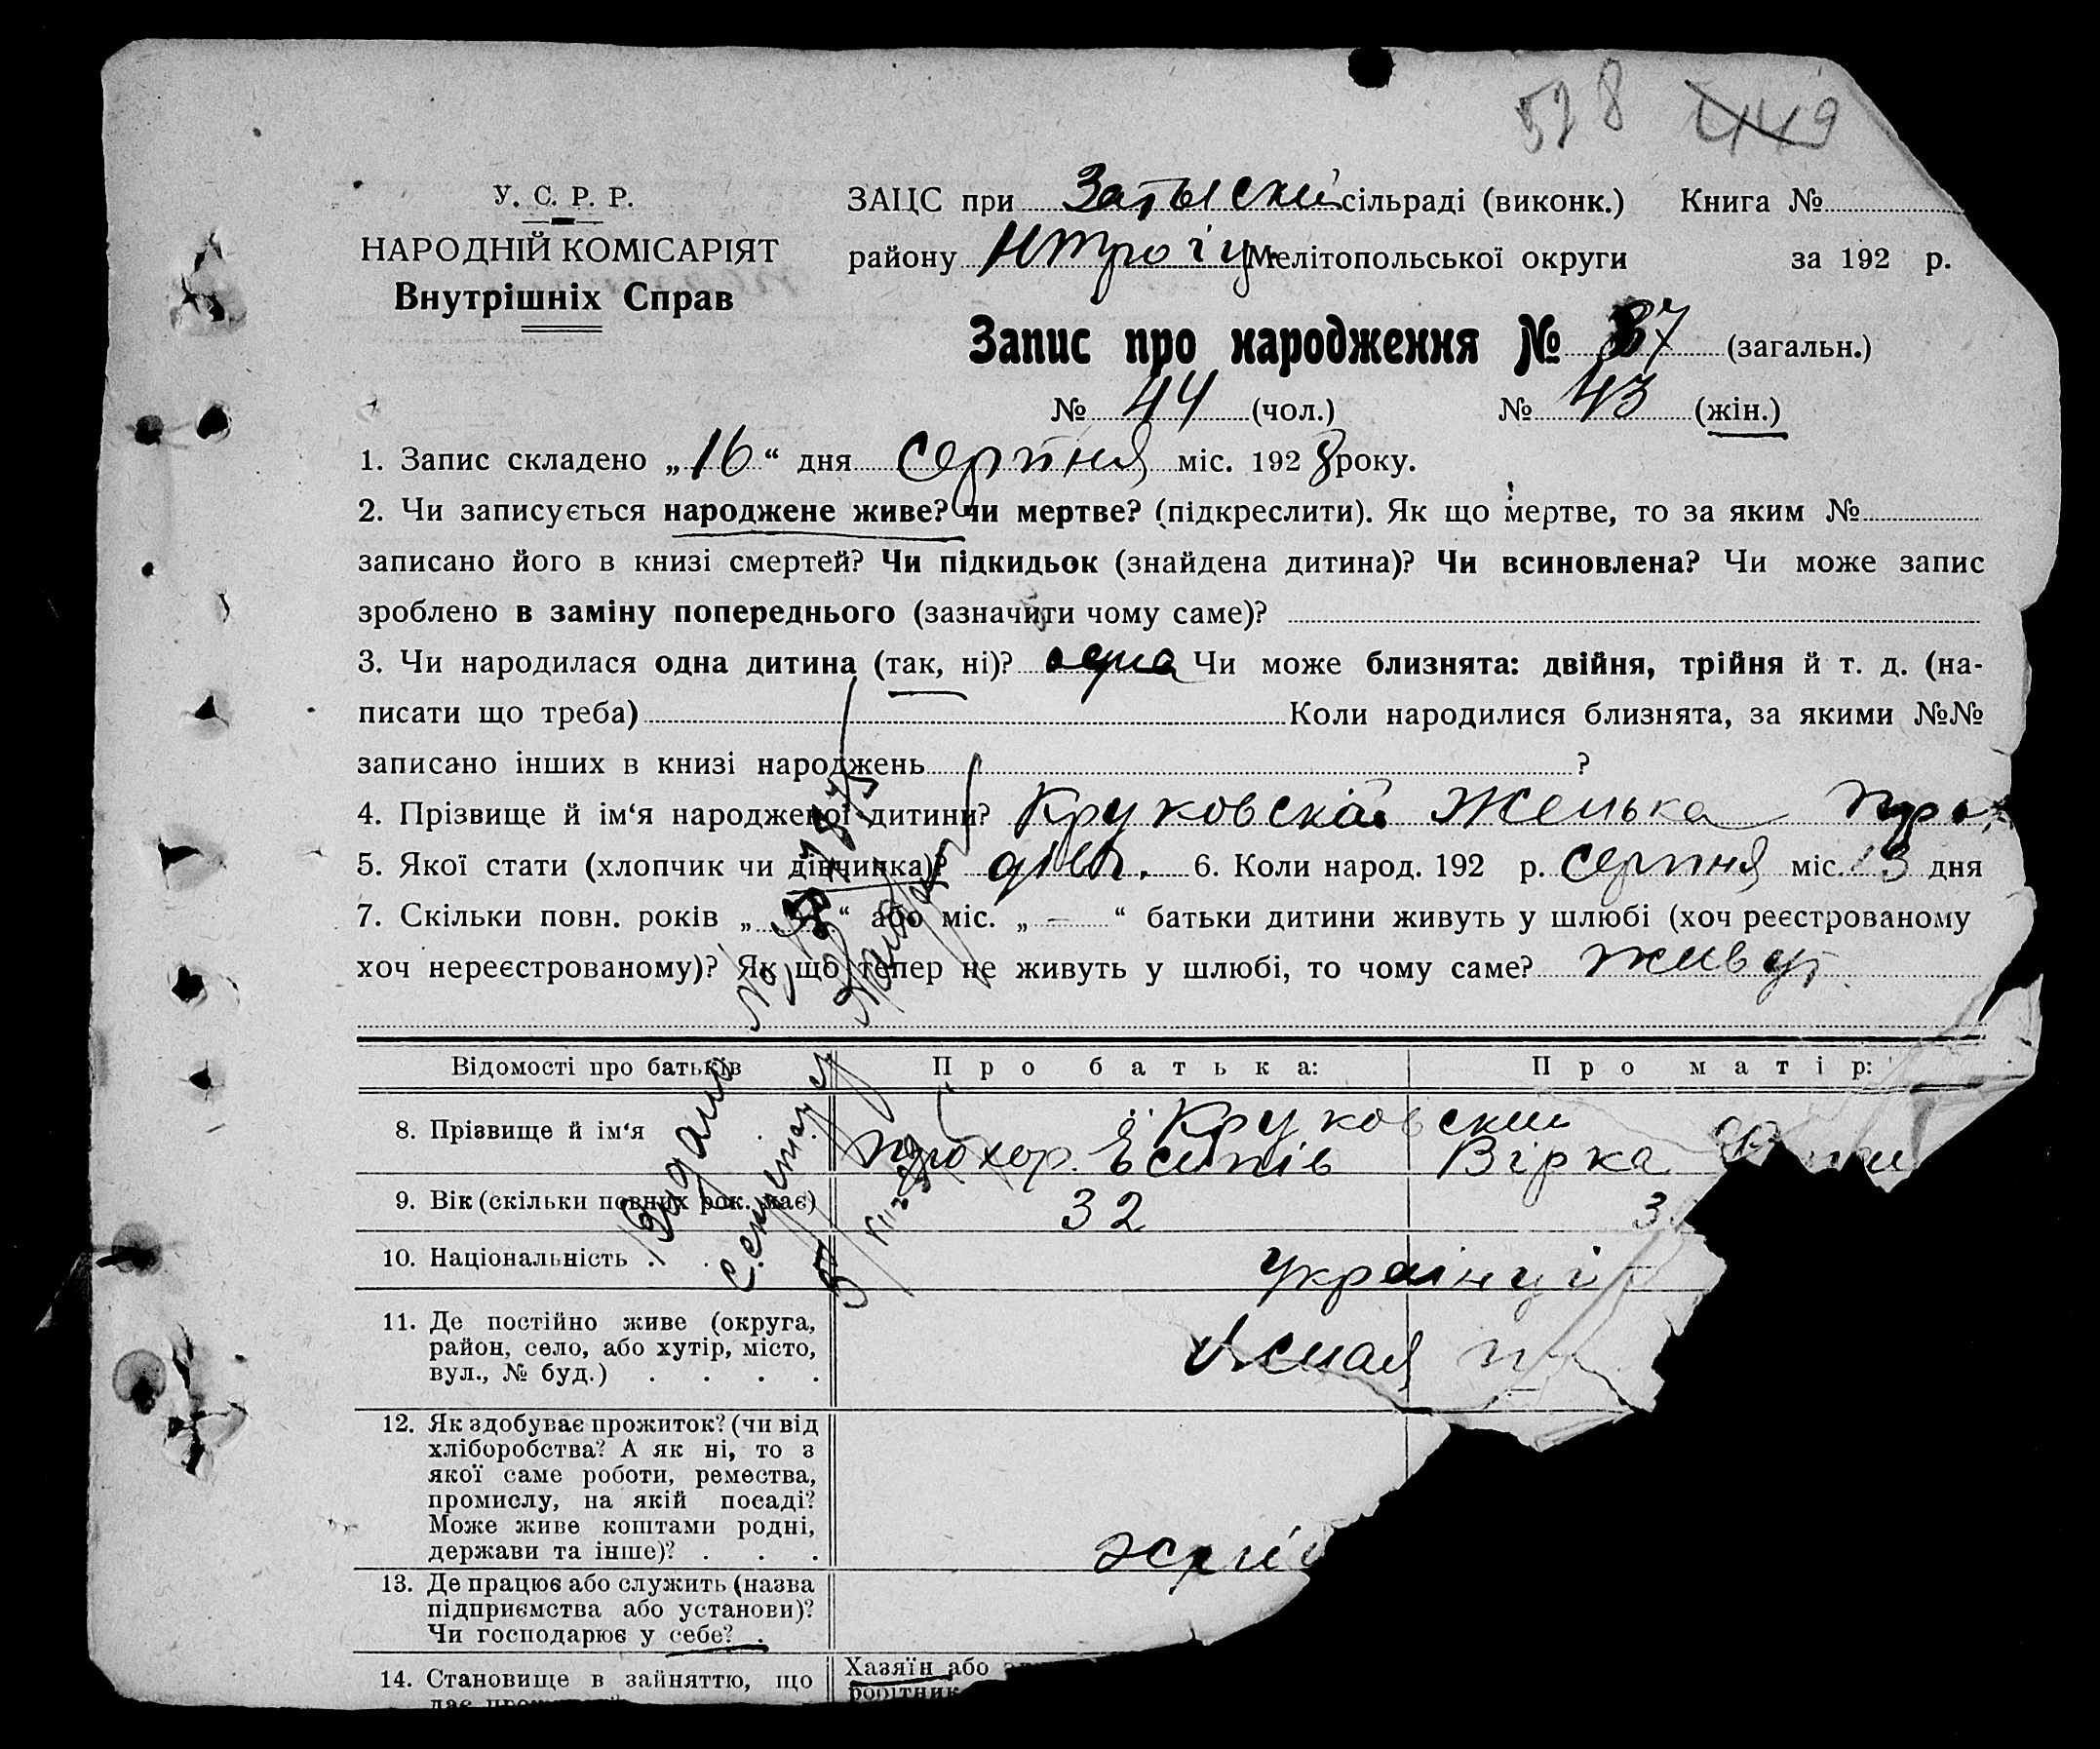 518 449
У. С. Р. Р.
НАРОДНІЙ КОМІСАРІЯТ
Внутрішніх Справ
ЗАЦС при сільраді (виконк.) Книга №
району Мелітопольської округи за 192 р.
Запис про народження № 87 (загальн.)
№ 44 (чол.) № 43 (жін.)
1. Запис складено „16“ дня серпня міс. 1928 року.
2. Чи записується народжене живе? чи мертве? (підкреслити). Як що мертве, то за яким №
записано його в книзі смертей? Чи підкидьок (знайдена дитина)? Чи всиновлена? Чи може запис
зроблено в заміну попереднього (зазначити чому саме)?
3. Чи народилася одна дитина (так, ні)? одна Чи може близнята: двійня, трійня й т. д. (на-
писати що треба) Коли народилися близнята, за якими №№
записано інших в книзі народжень ?
4. Прізвище й ім‘я народженої дитини? Круковскій Женька
5. Якої стати (хлопчик чи дівчинка)? дівч. 6. Коли народ. 192 р. серпня міс. 13 дня
7. Скільки повн. років „ “ або міс. „ – “ батьки дитини живуть у шлюбі (хоч реєстрованому
хоч нереєстрованому)? Як що тепер не живуть у шлюбі, то чому саме? живут
Відомості про батьків Про батька: Про матір:
8. Прізвище й ім‘я . Круковские
Прохор. Есипів Вірка
9. Вік (скільки повних рок. має) 32 3
10. Національність . . українці
11. Де постійно живе (округа,
район, село, або хутір, місто,
вул., № буд.) . . . . Ясная
12. Як здобуває прожиток? (чи від
хліборобства? А як ні, то з
якої саме роботи, ремества,
промислу, на якій посаді?
Може живе коштами родні,
держави та інше)? . . .
13. Де працює або служить (назва
підприємства або установи)?
Чи господарює у себе? .
14. Становище в зайняттю, що Хазяїн або